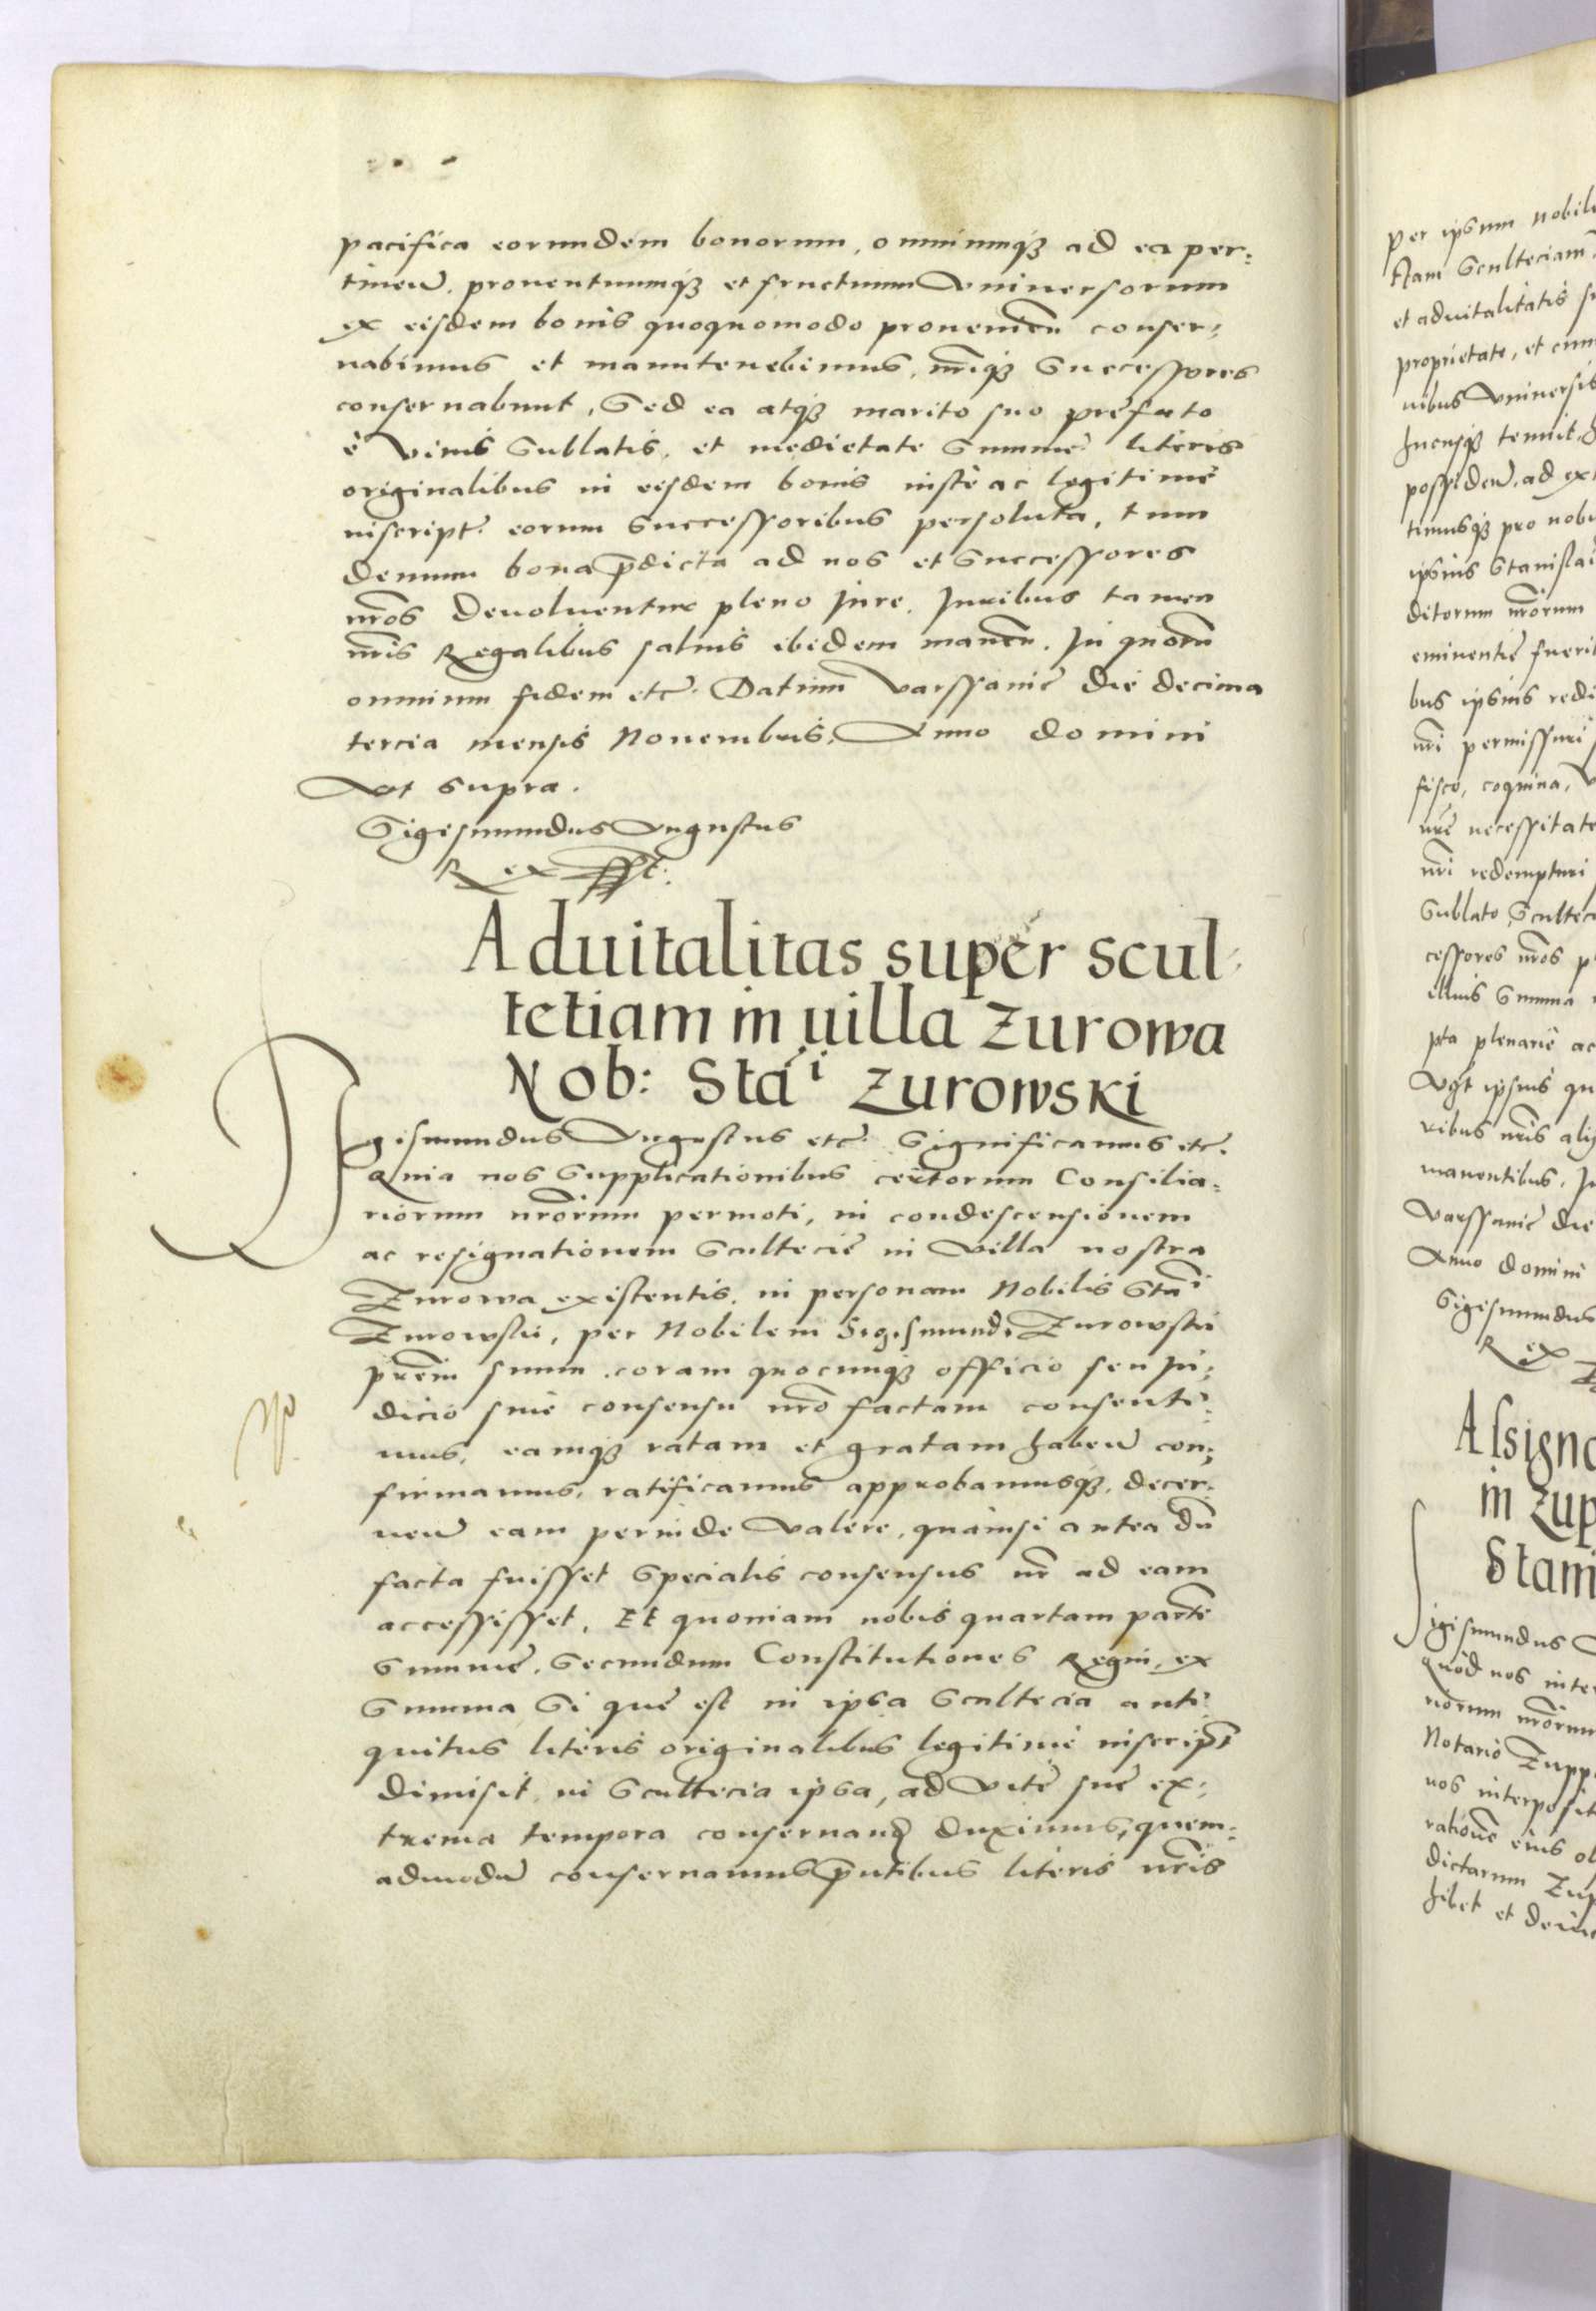 pacifica eorundem bonorum, omniumqȝ ad ea per:
tineñ. prouentuumqȝ et fructuum Vniuersorum
ex eisdem bonis quoquomodo prouenieñ conser:
uabimus et manutenebimus, nr̃iqȝ Successores
conseruabunt, Sed ea atqȝ marito suo prefato
è viuis Sublatis, et medietate Summe literis
originalibus in eisdem bonis iustè ac legitimè
inscript: eorum Successoribus persoluta, tum
demum bona p̃dicta ad nos et Successores
nr̃os deuoluentur pleno Jure. Juribus tamen
nr̃is Regalibus saluis ibidem maneñ. In quorũ
omnium fidem etc. Datum Varssauie die decima
tercia mensis Nouembris, Anno domini
Vt supra.
Sigismundus Augustus
Rex sst.
Aduitalitas super scul
tetiam in uilla Zurowa
Nob: Stãi Zurowski
Sigismundus Augustus etc. Significamus etc.
Quia nos Supplicationibus certorum Consilia:
riorum nr̃orum permoti, in condescensionem
ac resignationem Scultecie in Villa nostra
Zurowa existentis, in personam Nobilis Stãi
Zurowski, per Nobilem Sigismundi Zurowski
pr̃em suum coram quocunqȝ officio seu Ju:
dicio sine consensu nr̃o factam consenti:
mus, eamqȝ ratam et gratam habeñ con:
firmamus, ratificamus approbamusqȝ, decer:
neñ eam perinde Valere, quàmsi antea dũ
facta fuisset Specialis consensus nr̃ ad eam
accessisset, Et quoniam nobis quartam partẽ
Summe, Secundum Constitutiones Regni, ex
Summa Si que est in ipsa Scultecia anti
quitus literis originalibus legitimè inscript
dimisit, in Scultecia ipsa, ad Vite sue ex:
trema tempora conseruand duximus, quem:
admodũ conseruamus p̃ntibus literis nr̃is
per ipsum nobile
et aduitalitatis
proprietate, et cum
nibus Vniuersis
hucusqȝ tenuit
possideñ, ad ex
timusqȝ pro nobi
ipsius Stanislai
ditorum nr̃orum
euenientie fuerit
bus ipsius redi
nr̃i permissuri
fisco, coquina,
nr̃e necessitate
nr̃i redempturi
Sublato Scultec
cessores nr̃os p
Summa
pta plenarie ac
Vgt ipsius qu
ribus nr̃is aliis
manentibus, In
Varssauie die
Anno domini
Sigismundus
Rex
Assigna
in Zup
Stani
Sigismundus
Quòd nos inter
riorum nr̃orum
Notario Zupp
nos interposit
ratione eius ob
dictarum Zup
hibet et dein